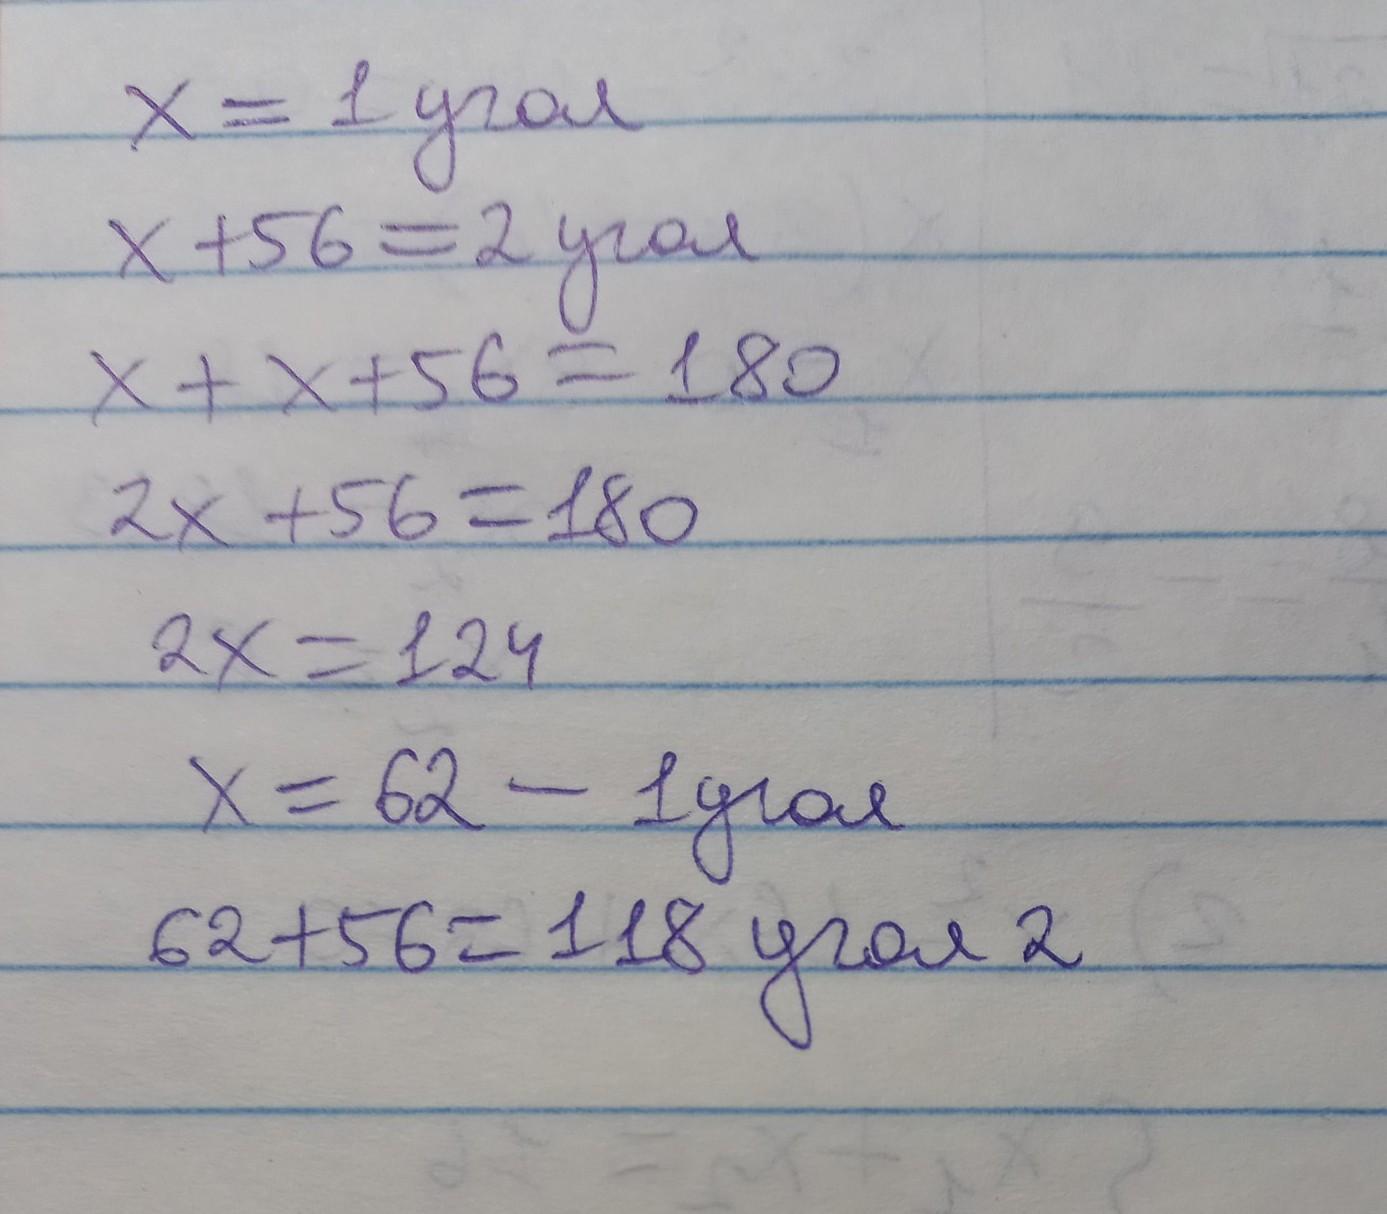 x = 1 угол
x + 56 = 2 угол
x + x + 56 = 180
2x + 56 = 180
2x = 124
x = 62 - 1 угол
62 + 56 = 118 угол 2